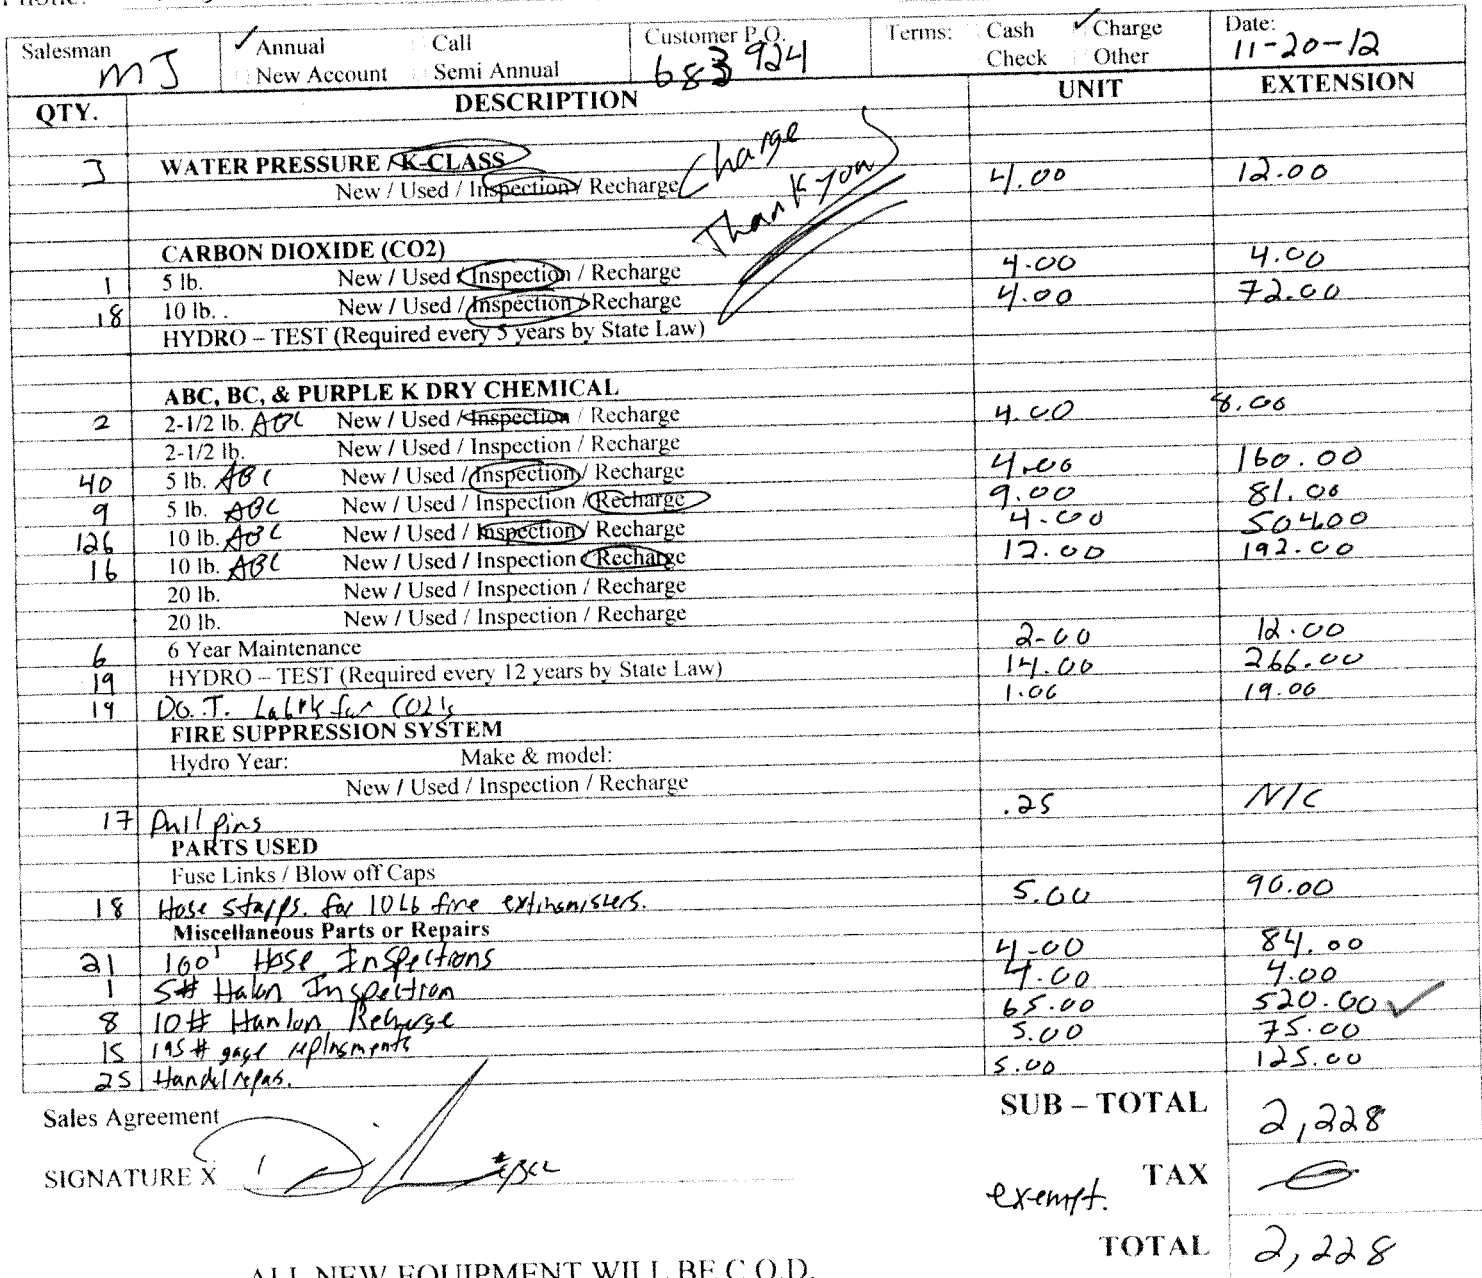 Salesman MJ ✓ Annual Call Customer P.O. 683924 Terms: Cash ✓ Charge Date: 11-20-12
New Account Semi Annual Check Other
QTY. DESCRIPTION UNIT EXTENSION
WATER PRESSURE / K-CLASS
3 New / Used / Inspection / Recharge 4.00 12.00
Charge
Thank You
CARBON DIOXIDE (CO2)
1 5 lb. New / Used / Inspection / Recharge 4.00 4.00
18 10 lb. . New / Used / Inspection / Recharge 4.00 72.00
HYDRO – TEST (Required every 5 years by State Law)
ABC, BC, & PURPLE K DRY CHEMICAL
2 2-1/2 lb. ABC New / Used / Inspection / Recharge 4.00 8.00
2-1/2 lb. New / Used / Inspection / Recharge
40 5 lb. ABC New / Used / Inspection / Recharge 4.00 160.00
9 5 lb. ABC New / Used / Inspection / Recharge 9.00 81.00
126 10 lb. ABC New / Used / Inspection / Recharge 4.00 504.00
16 10 lb. ABC New / Used / Inspection / Recharge 12.00 192.00
20 lb. New / Used / Inspection / Recharge
20 lb. New / Used / Inspection / Recharge
6 6 Year Maintenance 2.00 12.00
19 HYDRO – TEST (Required every 12 years by State Law) 14.00 266.00
19 D.O.T. for CO2's 1.00 19.00
FIRE SUPPRESSION SYSTEM
Hydro Year: Make & model:
New / Used / Inspection / Recharge
17 Pull Pins .25 N/C
PARTS USED
Fuse Links / Blow off Caps
18 Hose for 10 Lb fire 5.00 90.00
Miscellaneous Parts or Repairs
21 100' Hose Inspections 4.00 84.00
1 5# Halon Inspection 4.00 4.00
8 10# Hanlon Recharge 65.00 520.00 ✓
15 195# gage 5.00 75.00
25 Handel 5.00 125.00
Sales Agreement SUB – TOTAL 2,228
SIGNATURE X exempt. TAX
TOTAL 2,228
ALL NEW EQUIPMENT WILL BE C.O.D.